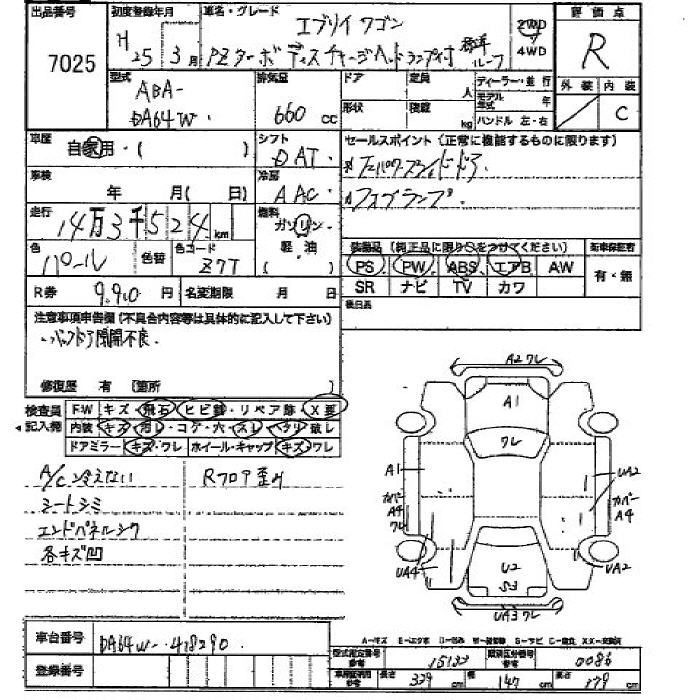 出品番号
7025
初度登録年月
H 25年 3月
車名・グレード
エブリイワゴン
PZターボディスチャージヘッドランプ付 標準ルーフ
2WD
4WD
評価点
R
外装 内装
C
型式
ABA-
DA64W.
排気量
660 cc
ドア
形状
定員 人
積載 kg
ディーラー・並行
モデル年式 年
ハンドル 左・右
車歴
自家用・( )
シフト
DAT
セールスポイント (正常に機能するものに限ります)
フォグランプ
車検
年 月( 日)
冷房
AAC
走行
14万3千524km
燃料
ガソリン
軽油
( )
色
パール
色替
色コード
Z7T
装備品(純正品に限り○をつけてください)
新車保証書
PS PW ABS エアB AW
有・無
SR ナビ TV カワ
R券 9,910円
名変期限 月 日
後日品
注意事項申告欄(不具合内容等は具体的に記入して下さい)
・バックドア開閉不良.
修復歴 有 (箇所 )
検査員記入欄
FW キズ・飛石・ヒビ割・リペア跡・X要
内装 キズ・汚レ・コゲ・穴・スレ・ヘタリ・破レ
ドアミラー キズ・ワレ ホイール・キャップ キズ・ワレ
A/C冷えない
Rフロア歪み
シートシミ
エンドパネルシワ
各キズ凹
A2 ワレ
A1
ワレ
A1
カバー
A4
ワレ
UA4
UA2
カバー
A4
UA2
U2
S3
UA3 ワレ
車台番号
DA64W-418290
登録番号
型式指定番号 参考
15133
類別区分番号 参考
0086
長さ 339 cm
幅 147 cm
高さ 179 cm